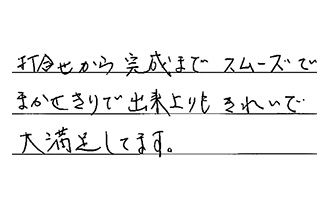 打合せから完成まで スムーズで
まかせきりで出来上りも きれいで
大満足してます。